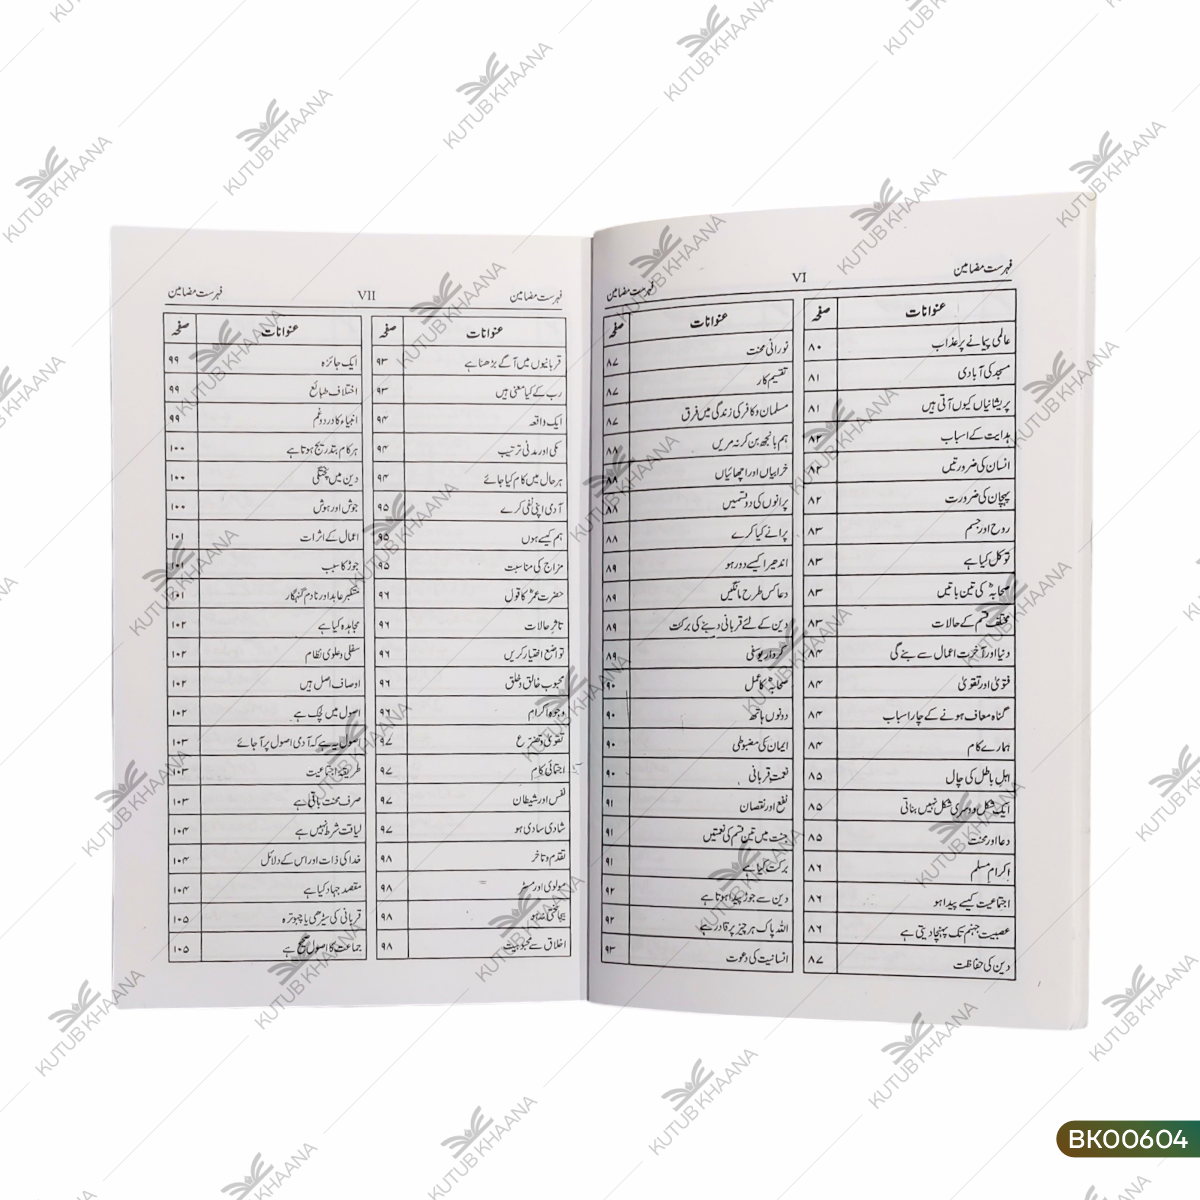 فہرست مضامین VI فہرست مضامین
عنوانات صفحہ
عالمی پیمانے پر عذاب ۸۰
مسجد کی آبادی ۸۱
پریشانیاں کیوں آتی ہیں ۸۱
ہدایت کے اسباب ۸۲
انسان کی ضرورتیں ۸۲
پہچان کی ضرورت ۸۲
روح اور جسم ۸۳
توکل کیا ہے ۸۳
صحابہؓ کی تین باتیں ۸۳
مختلف قسم کے حالات ۸۳
دنیا اور آخرت اعمال سے بنے گی ۸۴
فتویٰ اور تقویٰ ۸۴
گناہ معاف ہونے کے چار اسباب ۸۴
ہمارے کام ۸۴
اہل باطل کی چال ۸۵
ایک شکل دوسری شکل نہیں بناتی ۸۵
دعا اور محنت ۸۵
اکرام مسلم ۸۶
اجتماعیت کیسے پیدا ہو ۸۶
عصبیت جہنم تک پہنچا دیتی ہے ۸۶
دین کی حفاظت ۸۷
عنوانات صفحہ
نورانی محنت ۸۷
تقسیم کار ۸۷
مسلمان و کافر کی زندگی میں فرق ۸۷
ہم بانجھ بن کر نہ مریں ۸۸
خرابیاں اور اچھائیاں ۸۸
پرانوں کی دو قسمیں ۸۸
پرانے کیا کرے ۸۸
اندھیرا کیسے دور ہو ۸۹
دعا کس طرح مانگیں ۸۹
دین کے لئے قربانی دینے کی برکت ۸۹
کردار یوسفی ۸۹
صحابہؓ کا عمل ۹۰
دونوں ہاتھ ۹۰
ایمان کی مضبوطی ۹۰
نعمت قربانی ۹۰
نفع اور نقصان ۹۱
جنت میں تین قسم کی نعمتیں ۹۱
برکت کیا ہے ۹۱
دین سے جوڑ پیدا ہوتا ہے ۹۲
اللہ پاک ہر چیز پر قادر ہے ۹۲
انسانیت کی دعوت ۹۳
فہرست مضامین VII فہرست مضامین
عنوانات صفحہ
قربانیوں میں آگے بڑھنا ہے ۹۳
رب کے کیا معنی ہیں ۹۳
ایک واقعہ ۹۴
مکی اور مدنی ترتیب ۹۴
ہر حال میں کام کیا جائے ۹۴
آدمی اپنی نفی کرے ۹۵
ہم کیسے ہوں ۹۵
مزاج کی مناسبت ۹۵
حضرت عمرؓ کا قول ۹۶
تاثر حالات ۹۶
تواضع اختیار کریں ۹۶
محبوب خالق و خلق ۹۶
وجوہ اکرام ۹۶
تقویٰ و تضرع ۹۷
اجتماعی کام ۹۷
نفس اور شیطان ۹۷
شادی سادی ہو ۹۷
تقدم و تاخر ۹۸
مولوی اور مسٹر ۹۸
۹۸
اخلاق سے محبوبیت ۹۸
عنوانات صفحہ
ایک جائزہ ۹۹
اختلاف طبائع ۹۹
انبیاء کا درد و غم ۹۹
ہر کام بتدریج ہوتا ہے ۱۰۰
دین میں پختگی ۱۰۰
جوش اور ہوش ۱۰۰
اعمال کے اثرات ۱۰۱
جوڑ کا سبب ۱۰۱
متکبر عابد اور نادم گنہگار ۱۰۱
مجاہدہ کیا ہے ۱۰۲
سفلی و علوی نظام ۱۰۲
اوصاف اصل ہیں ۱۰۲
اصول میں لچک ہے ۱۰۲
اصول یہ ہے کہ آدمی اصول پر آ جائے ۱۰۳
طریقۂ اجتماعیت ۱۰۳
صرف محنت باقی ہے ۱۰۳
لیاقت شرط نہیں ہے ۱۰۴
خدا کی ذات اور اس کے دلائل ۱۰۴
مقصد جہاد کیا ہے ۱۰۴
قربانی کی سیڑھی یا چبوترہ ۱۰۵
جماعت کا اصول صحیح ہے ۱۰۵
KUTUB KHAANA
BK00604